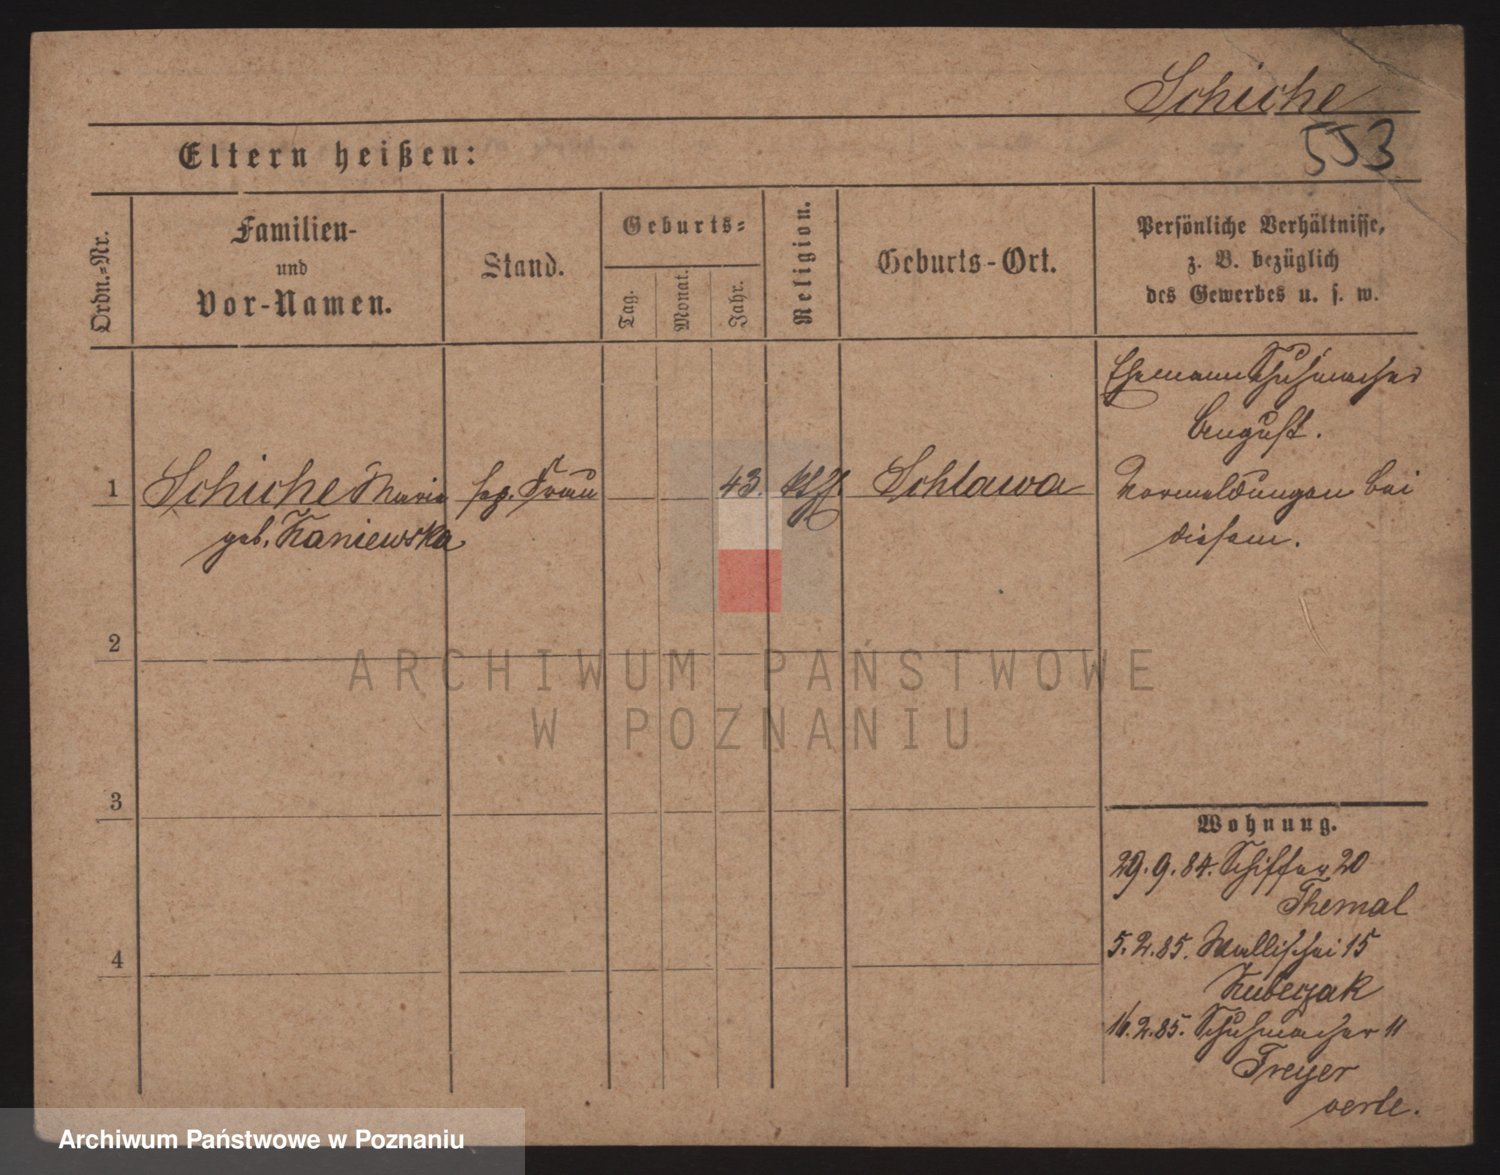 Schiche
553
Eltern heißen:
Ordn.=Nr.
Familien-
und
Vor-Namen.
Stand.
Geburts=
Tag.
Monat.
Jahr.
Religion.
Geburts-Ort.
Persönliche Verhältnisse,
z. B. bezüglich
des Gewerbes u. s. w.
Ehemann Schuhmacher
August.
1
Schiche Maria
geb. Kaniewska
Frau
43.
Schlawa
Vormeldungen bei
diesem.
2
3
4
Wohnung.
29.9.84. Schiffer 20
Themal
5.2.85. Wallischei 15
Kuberzak
16.2.85. Schuhmacher 11
Freyer
ARCHIWUM PAŃSTWOWE
W POZNANIU
Archiwum Państwowe w Poznaniu